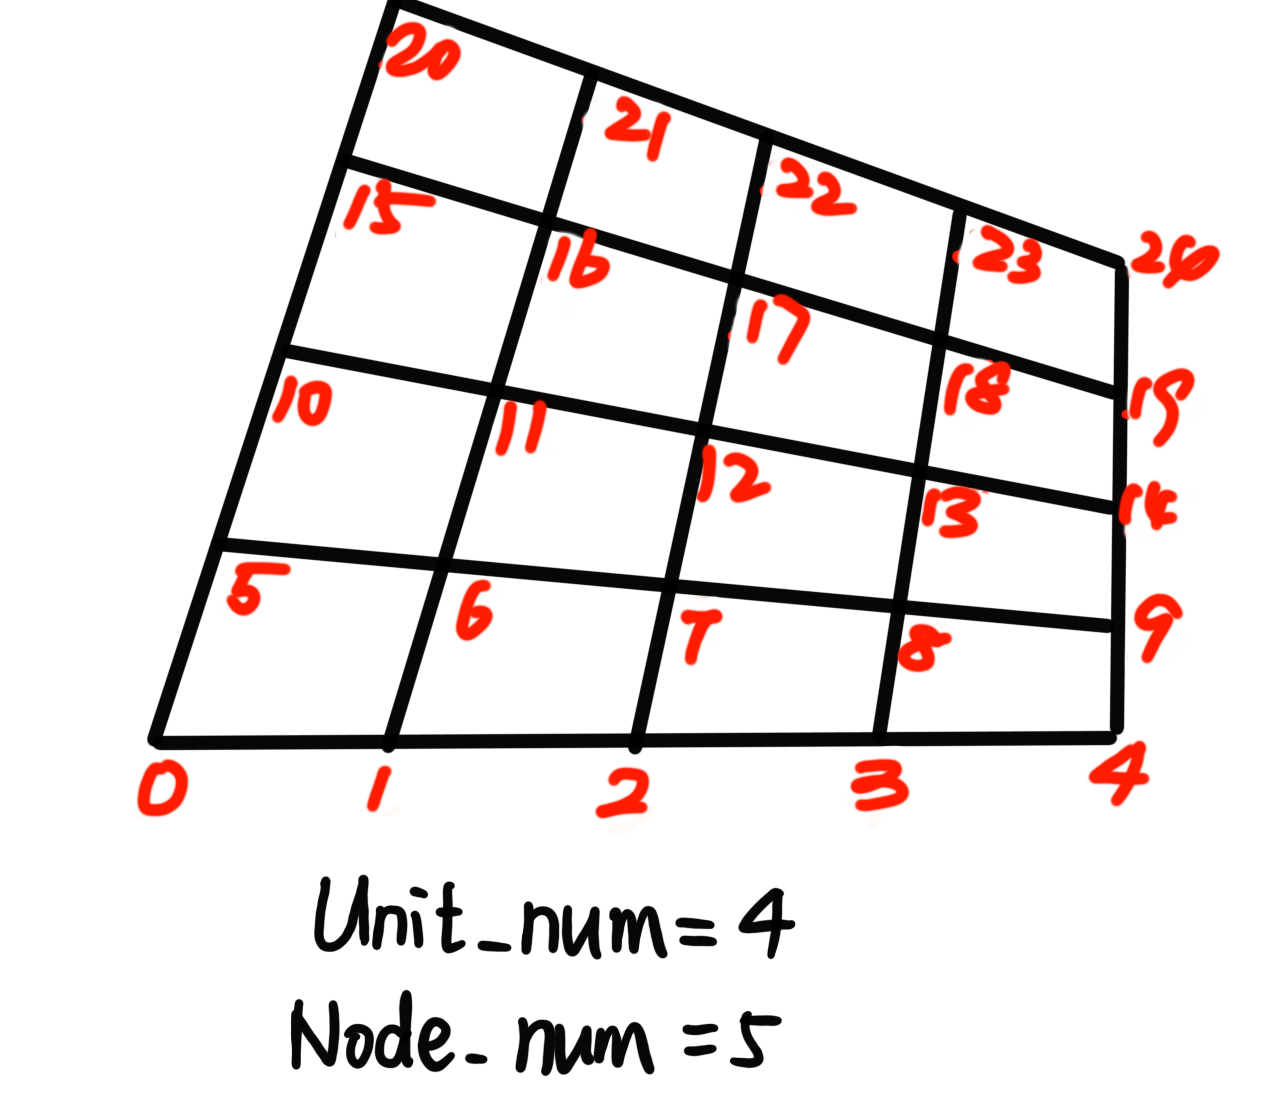 20
21
22
23
24
15
16
17
18
19
10
11
12
13
14
5
6
7
8
9
0 1 2 3 4
Unit_num=4
Node_num=5